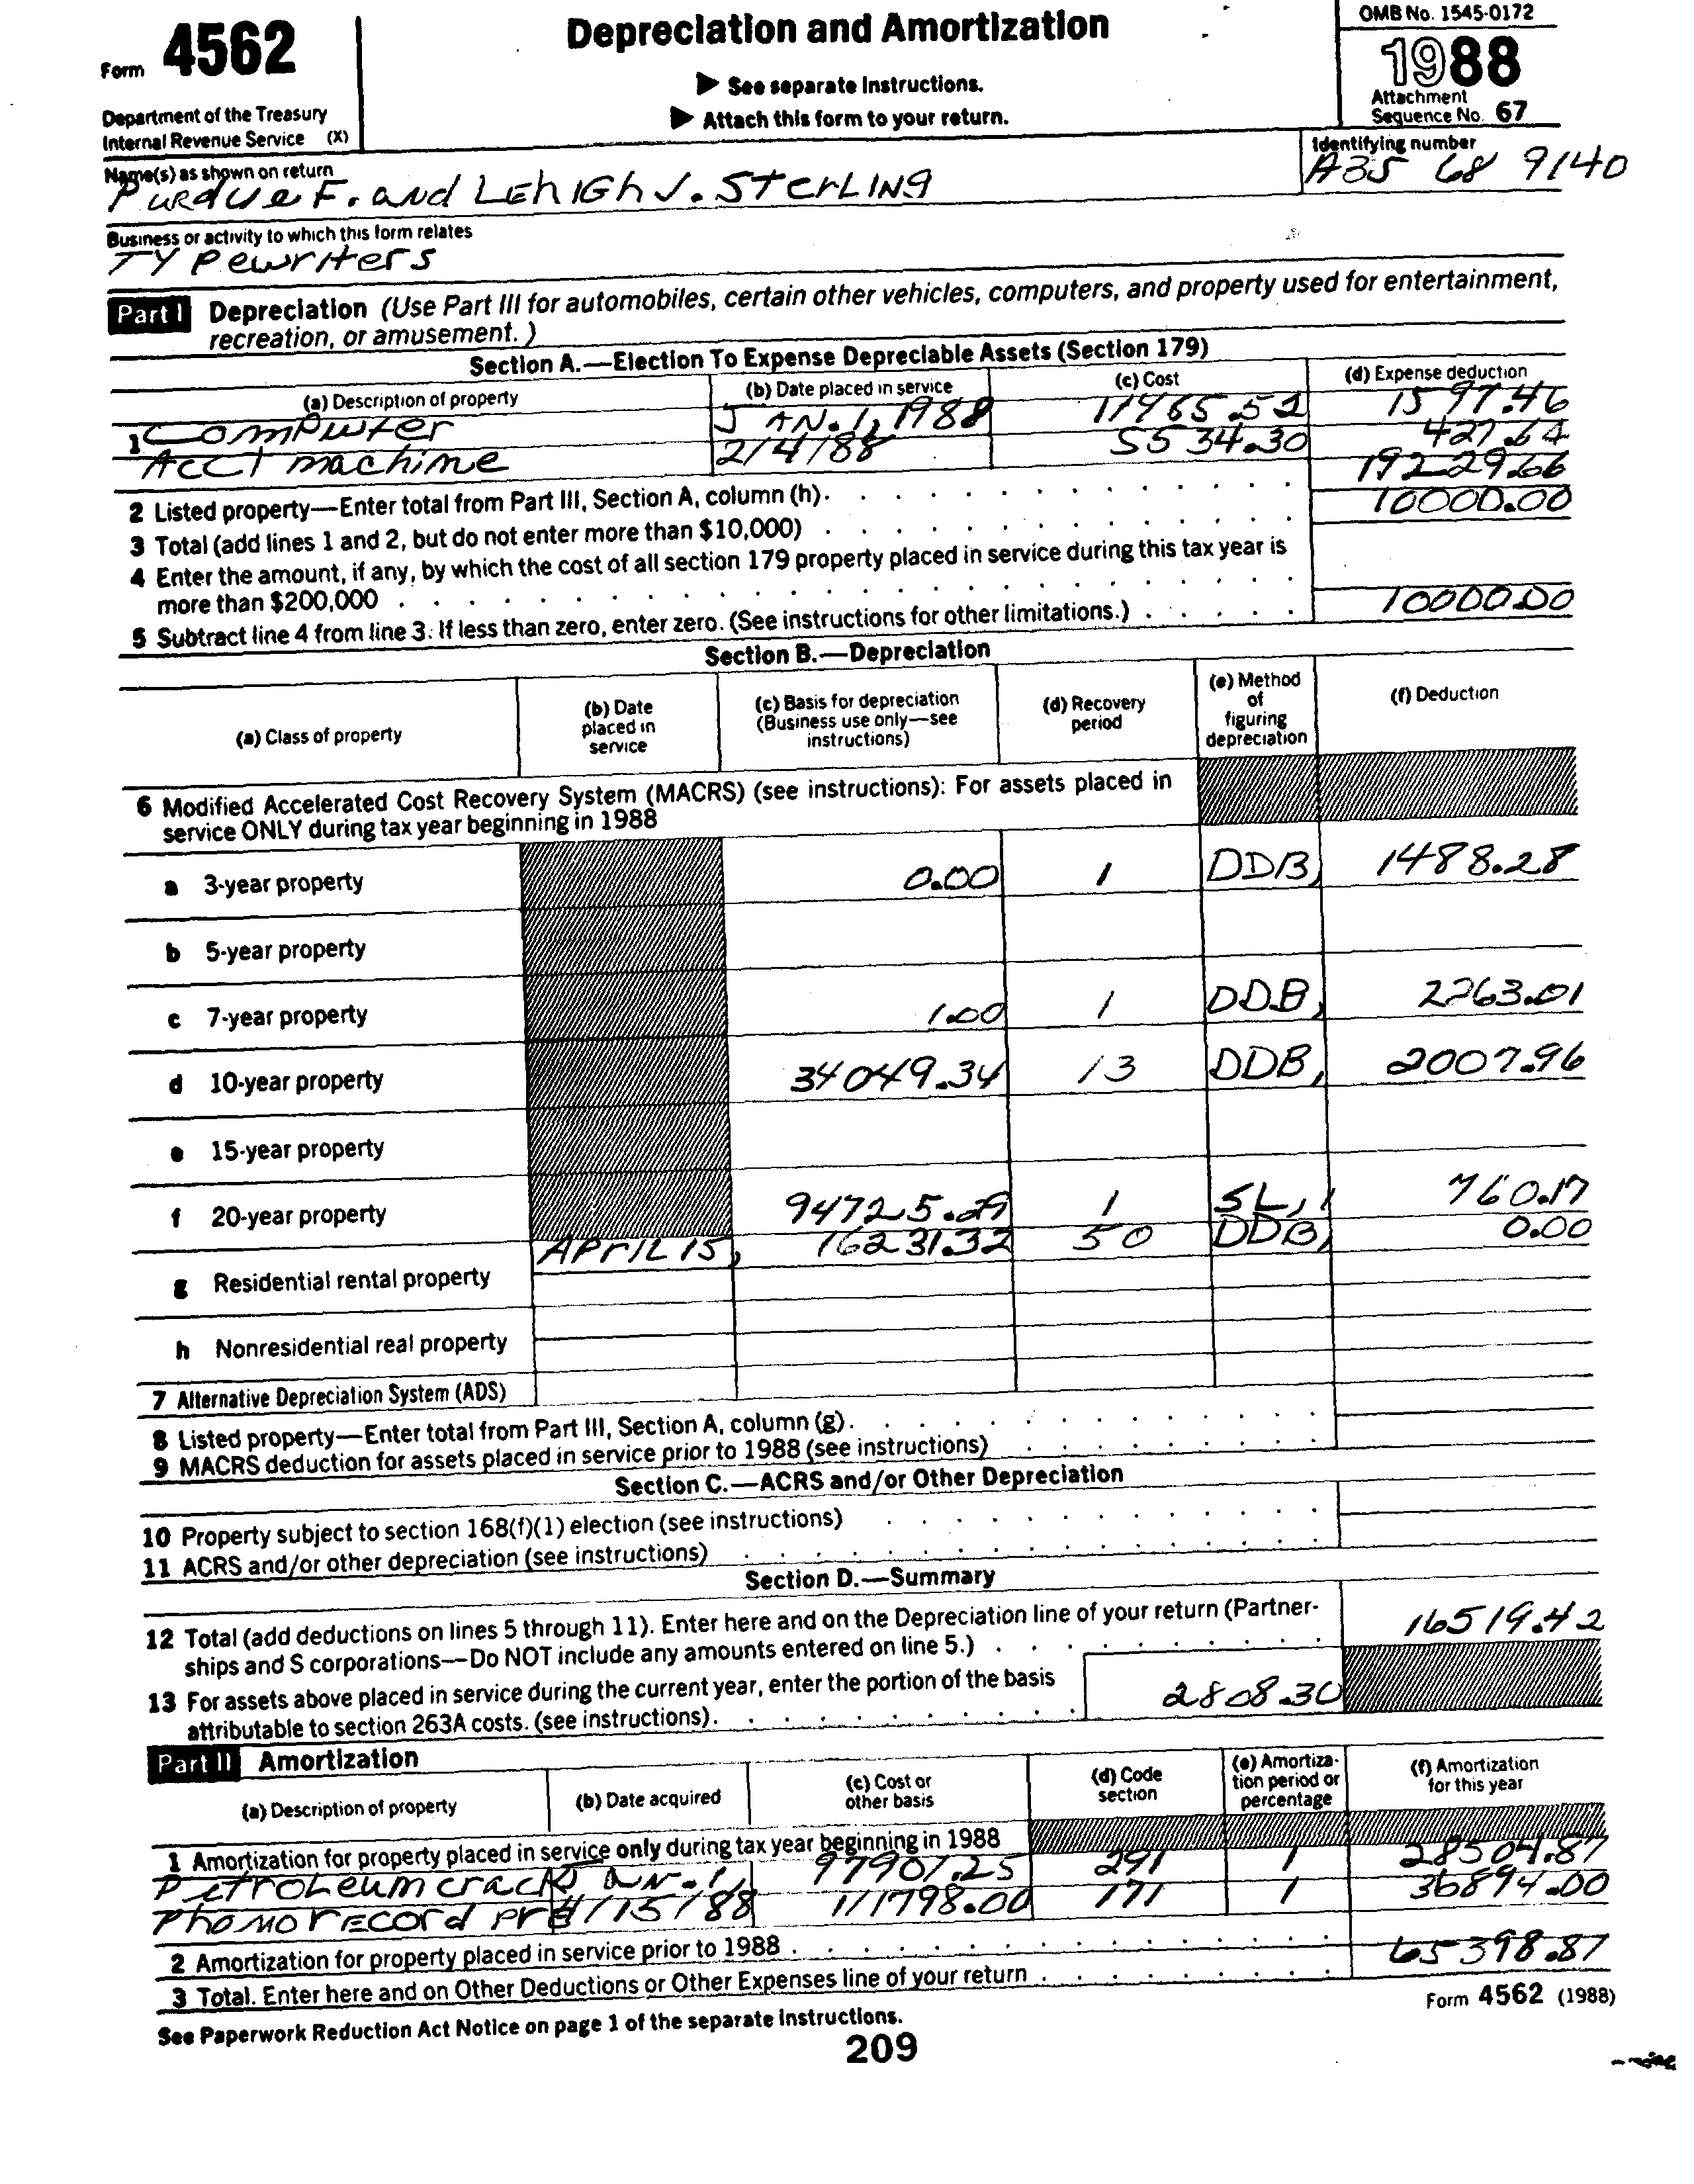 Form 4562
Depreciation and Amortization
OMB No. 1545-0172
1988
▶ See separate Instructions.
▶ Attach this form to your return.
Attachment
Sequence No. 67
Department of the Treasury
Internal Revenue Service (X)
Name(s) as shown on return
Identifying number
Purdue F. and Lehigh J. Sterling
A35 68 9140
Business or activity to which this form relates
Typewriters
Part I Depreciation (Use Part III for automobiles, certain other vehicles, computers, and property used for entertainment,
recreation, or amusement.)
Section A.—Election To Expense Depreciable Assets (Section 179)
(a) Description of property (b) Date placed in service (c) Cost (d) Expense deduction
1 Computer JAN. 1, 1988 11465.52 1597.46
Acct machine 2/4/88 5534.30 427.64
2 Listed property—Enter total from Part III, Section A, column (h). 19229.66
3 Total (add lines 1 and 2, but do not enter more than $10,000) 10000.00
4 Enter the amount, if any, by which the cost of all section 179 property placed in service during this tax year is
more than $200,000
5 Subtract line 4 from line 3. If less than zero, enter zero. (See instructions for other limitations.) 10000.00
Section B.—Depreciation
(a) Class of property (b) Date placed in service (c) Basis for depreciation (Business use only—see instructions) (d) Recovery period (e) Method of figuring depreciation (f) Deduction
6 Modified Accelerated Cost Recovery System (MACRS) (see instructions): For assets placed in
service ONLY during tax year beginning in 1988
a 3-year property 0.00 1 DDB, 1488.28
b 5-year property
c 7-year property 1.00 1 DDB, 2263.01
d 10-year property 34049.34 13 DDB, 2007.96
e 15-year property
f 20-year property 94725.29 1 SL, 1 760.17
APRIL 15, 16231.32 50 DDB, 0.00
g Residential rental property
h Nonresidential real property
7 Alternative Depreciation System (ADS)
8 Listed property—Enter total from Part III, Section A, column (g).
9 MACRS deduction for assets placed in service prior to 1988 (see instructions)
Section C.—ACRS and/or Other Depreciation
10 Property subject to section 168(f)(1) election (see instructions)
11 ACRS and/or other depreciation (see instructions)
Section D.—Summary
12 Total (add deductions on lines 5 through 11). Enter here and on the Depreciation line of your return (Partner-
ships and S corporations—Do NOT include any amounts entered on line 5.) 16519.42
13 For assets above placed in service during the current year, enter the portion of the basis
attributable to section 263A costs. (see instructions). 2808.30
Part II Amortization
(a) Description of property (b) Date acquired (c) Cost or other basis (d) Code section (e) Amortiza-tion period or percentage (f) Amortization for this year
1 Amortization for property placed in service only during tax year beginning in 1988
Petroleum crack JAN. 1, 97901.25 291 1 28504.87
Phonorecord pre 4/15/88 111798.00 171 1 36894.00
2 Amortization for property placed in service prior to 1988
3 Total. Enter here and on Other Deductions or Other Expenses line of your return 65398.87
See Paperwork Reduction Act Notice on page 1 of the separate instructions.
Form 4562 (1988)
209